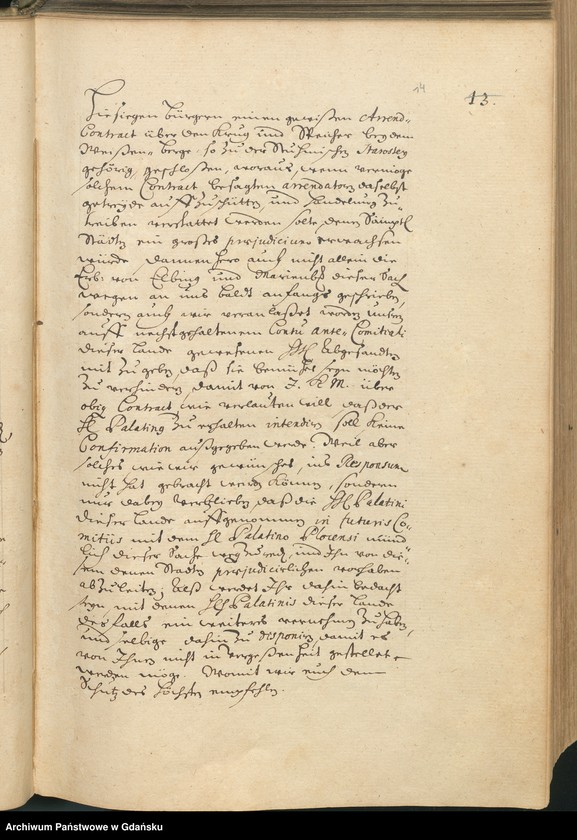 14
13.
Hiesiegen bürgern einen gewißen Arrend=
Contract über den Krug und Speicher bey dem
Weißen=berge so zu der Stuhmischen Starostey
gehörig, geschloßen, woraus, wenn vermöge
solchem Contract besagten arrendatorn daselbst
getreyde auffzuschütten und Handelung zu
treiben verstattet werden solte, denen Sämptl
Städten ein großes praejudicium erwachsen
würde, dannenhero auch nicht allein die
Erb: von Elbing und Marienb: dieser Sach
wegen an uns baldt anfangs geschrieben,
sondern auch wir veranlaßet worden unsern
auff nechstgehaltenem Contu ante=Comitiali
dieser Lande gewesenen HH Abgesandten
mit zu geben, daß sie bemühet seyn möchten
zu verhindern, damit von I. K M. über
obig Contract, wie verlauten will, daß der
H Palatinus zu erhalten intendiren soll keine
Confirmation außgegeben werde, Weil aber
solches wie wir gewünschet, ins Responsum
nicht hat gebracht werden können, sondern
nur dabey verblieben, daß die HH Palatini
dieser Lande auffgenommen in futuris Co=
mitiis mit dem H Palatino Plocensi münd
lich dieser Sache weg zu reden, und Ihn von die=
sem denen Städten praejudicirlichen vorhaben
abzuleiten; Alß werdet Ihr dahin bedacht
seyn mit denen HH Palatinis dieser Lande
desfalls ein weiteres vernehmen zu haben,
und selbige dahin zu disponiren, damit es
von Ihnen nicht in vergeßenheit gestellet
werden möge. Womit wir euch dem
Schutz des Höchsten empfehlen.
Archiwum Państwowe w Gdańsku